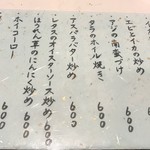 エビとイカの炒め 600
アジの南蛮づけ
タラのホイル焼き 600
アスパラバター炒め 600
レタスのオイスターソース炒め 600
ほうれん草のにんにく炒め 600
ホイコーロー 600